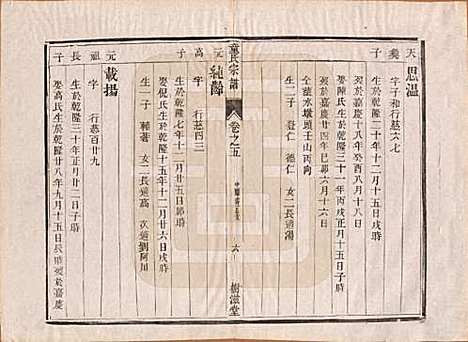 天
癸
子
思溫
字子和行慈六七
生於乾隆三十
歿於嘉慶十八年癸酉八月十八
娶陳氏生於乾隆三十一年丙戌正月十五日戌時
歿於嘉慶廿四年己卯六月十六日
仝葬水墩頭壬山丙向
生二子 登仁 德仁 女一長適湯
元
高
子
純齡
字 行慈四三
生於乾隆七年十二月廿五日卯時
娶 氏生於乾隆十五年十二月廿六日申時
生一子 輔著 女二長適高 次適劉阿川
童氏宗譜
卷之五
六
樹滋堂
元
祖
長
子
載揚
字 行慈百廿九
生於乾隆三十年正月廿二日子時
娶高氏生於乾隆廿八年九月十五日辰時歿於嘉慶